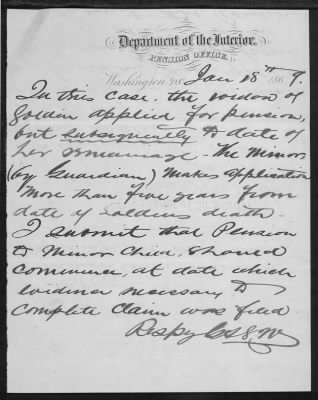 Department of the Interior,
PENSION OFFICE,
Washington, D.C. Jan 18th 1869.
In this case, the widow of
soldier applied for pension,
but subsequently to date of
her remarriage - The Minor
(by Guardian) makes application
more than five years from
date of soldiers death.
I submit that Pension
to Minor Child, should
commence, at date which
evidence necessary to
complete Claim was filed
Respy